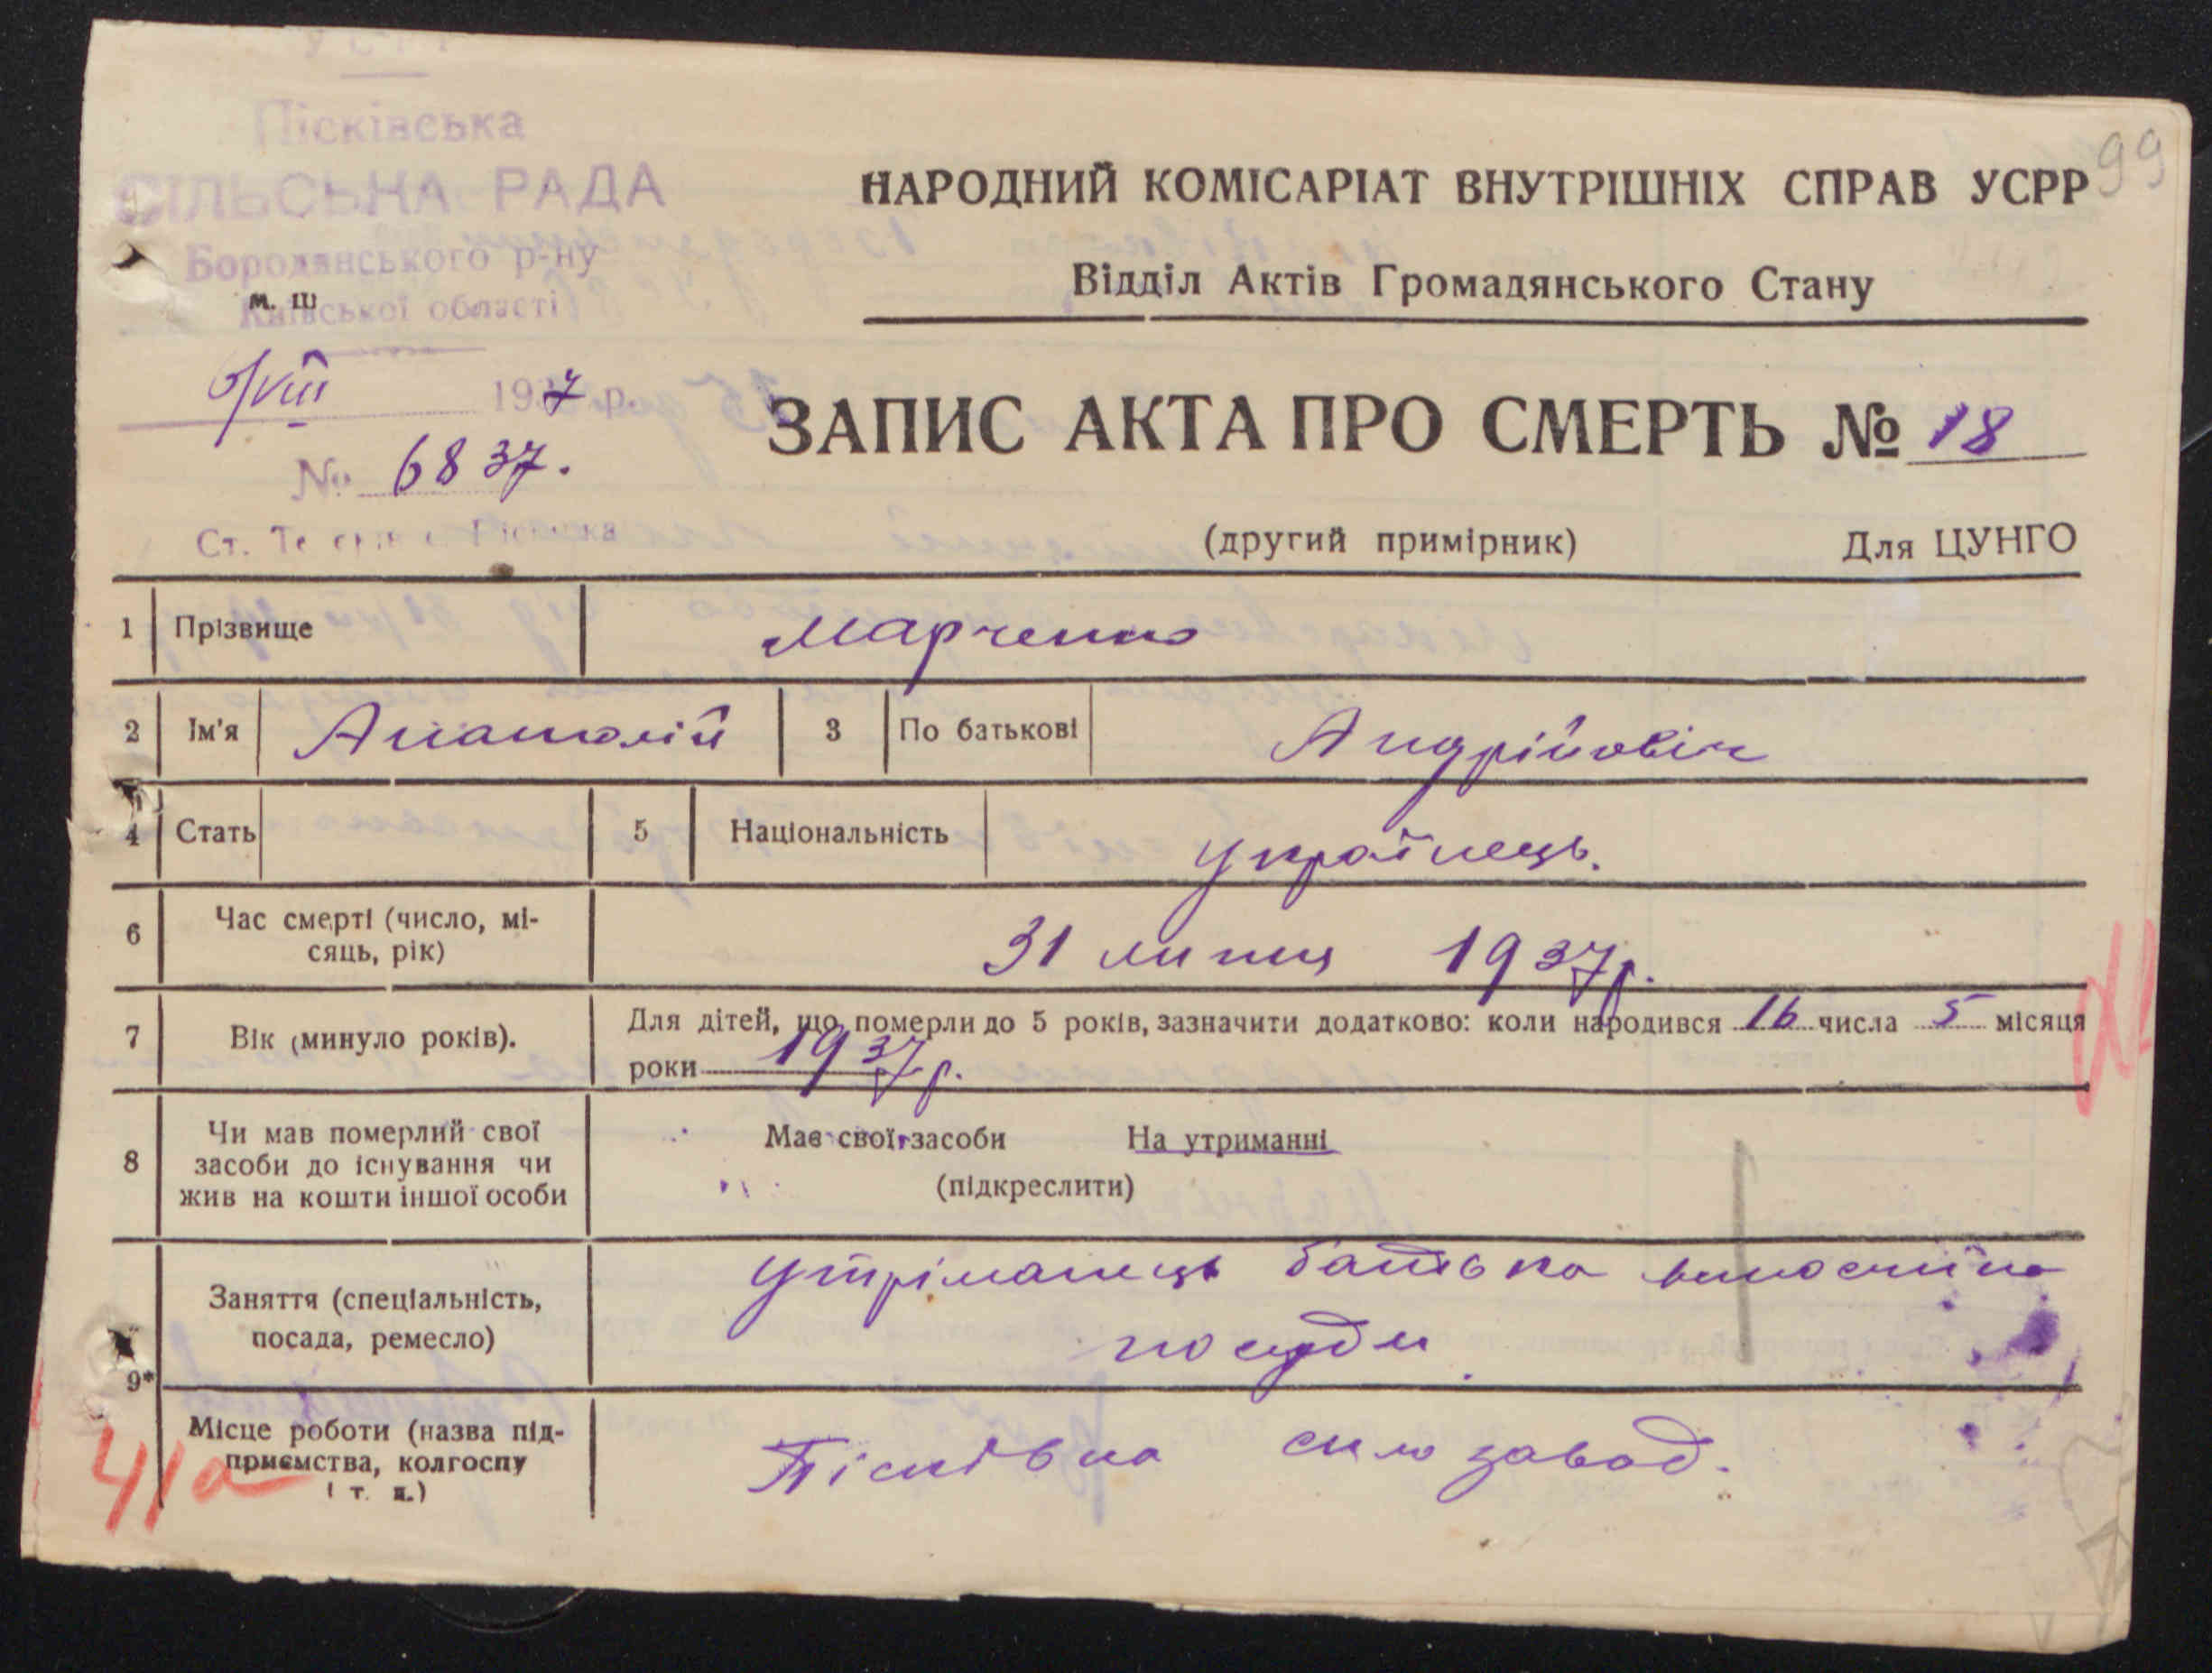 УСРР
Пісківська
СІЛЬСЬКА РАДА
Бородянського р-ну
Київської області
м. ш
6/VIII 1937 р.
№ 6837.
Ст. Тетерів
99
НАРОДНИЙ КОМІСАРІАТ ВНУТРІШНІХ СПРАВ УСРР
Відділ Актів Громадянського Стану
ЗАПИС АКТА ПРО СМЕРТЬ № 18
(другий примірник) Для ЦУНГО
1 Прізвище Марченко
2 Ім'я Анатолій 3 По батькові Андрійовіч
4 Стать 5 Національність українець.
6 Час смерті (число, мі-
сяць, рік) 31 липня 1937р.
7 Вік (минуло років). Для дітей, що померли до 5 років, зазначити додатково: коли народився 16 числа 5 місяця
роки 1937р.
8 Чи мав померлий свої
засоби до існування чи
жив на кошти іншої особи
Має свої засоби На утриманні
(підкреслити)
9*
Заняття (спеціальність,
посада, ремесло)
утріманець батька
посуди
Місце роботи (назва під-
приємства, колгоспу
і т. д.)
Пісківка склозавод.
41а